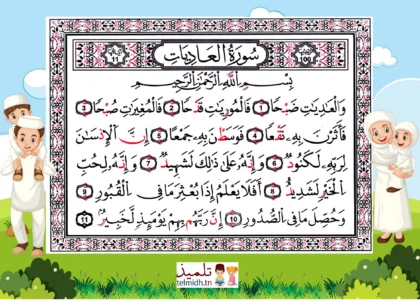 سُورَةُ الْعَادِيَاتِ
بِسْمِ اللَّهِ الرَّحْمَٰنِ الرَّحِيمِ
وَالْعَادِيَاتِ ضَبْحًا 1 فَالْمُورِيَاتِ قَدْحًا 2 فَالْمُغِيرَاتِ صُبْحًا 3
فَأَثَرْنَ بِهِ نَقْعًا 4 فَوَسَطْنَ بِهِ جَمْعًا 5 إِنَّ الْإِنْسَانَ
لِرَبِّهِ لَكَنُودٌ 6 وَإِنَّهُ عَلَىٰ ذَٰلِكَ لَشَهِيدٌ 7 وَإِنَّهُ لِحُبِّ
الْخَيْرِ لَشَدِيدٌ 8 أَفَلَا يَعْلَمُ إِذَا بُعْثِرَ مَا فِي الْقُبُورِ 9
وَحُصِّلَ مَا فِي الصُّدُورِ 10 إِنَّ رَبَّهُم بِهِمْ يَوْمَئِذٍ لَّخَبِيرٌ 11
تلميذ
telmidh.tn